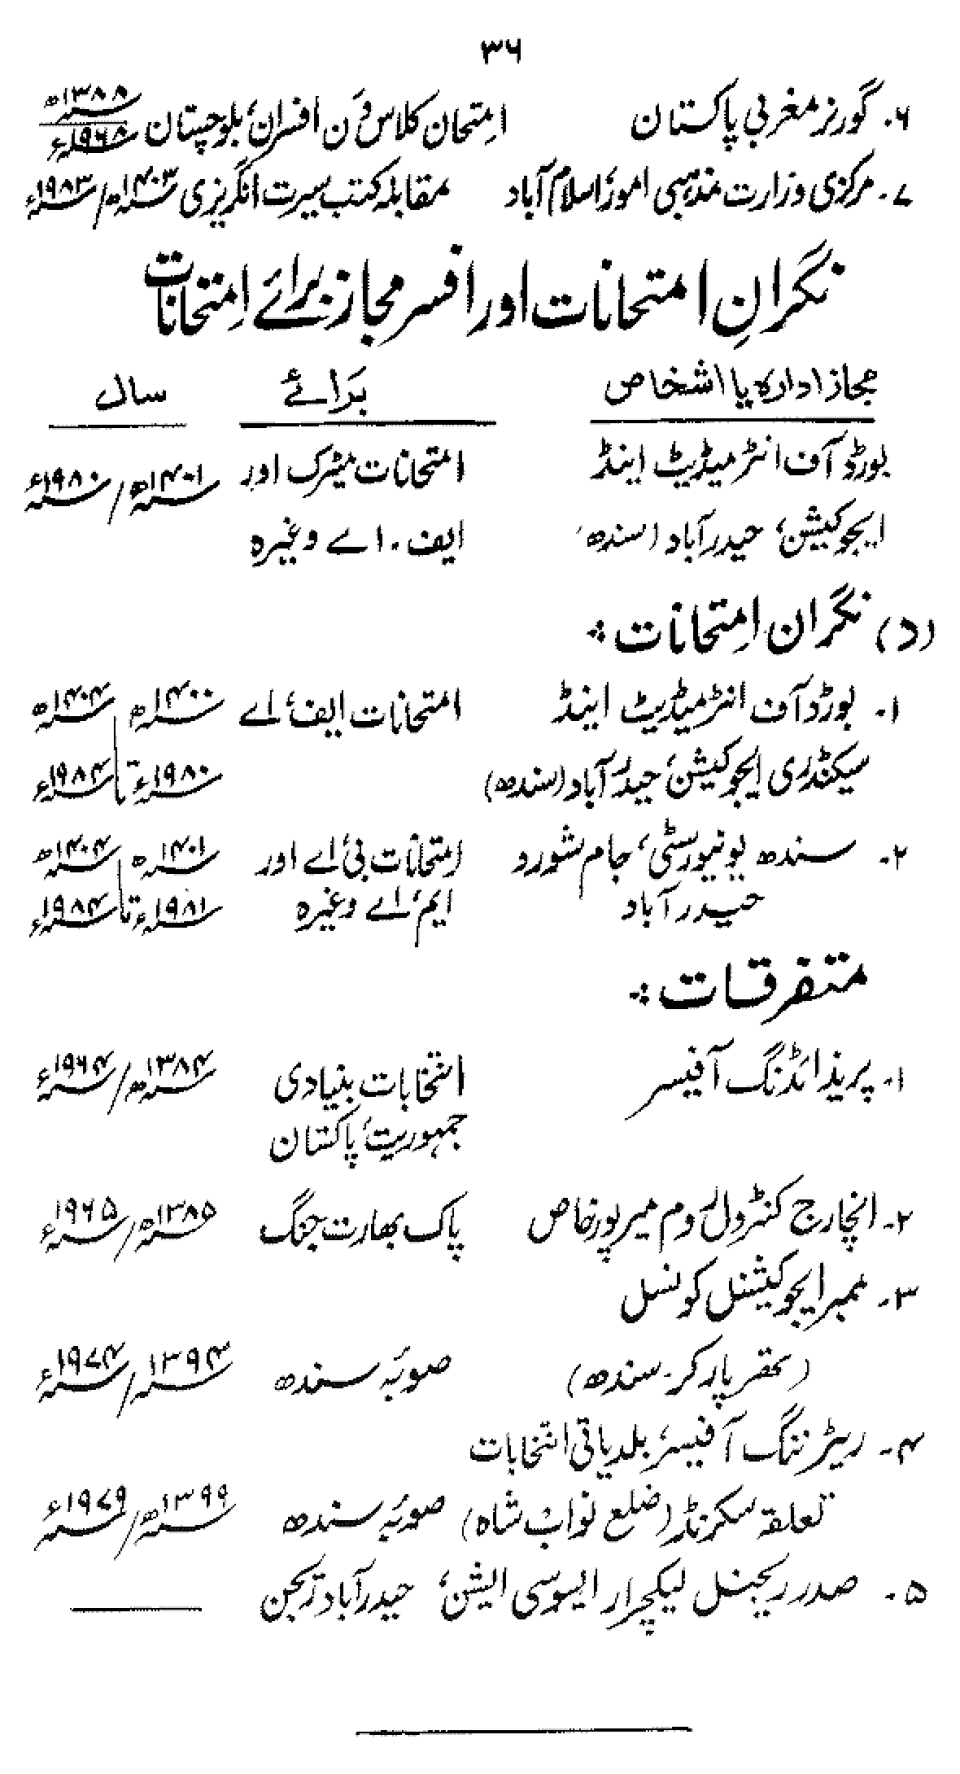 ۳۶
۶۔ گورنر مغربی پاکستان امتحان کلاس ون افسران، بلوچستان ۱۳۸۸ھ ۱۹۶۸ء
۷۔ مرکزی وزارت مذہبی امور، اسلام آباد مقابلہ کتب سیرت انگریزی ۱۴۰۳ھ/۱۹۸۳ء
نگرانِ امتحانات اور افسر مجاز برائے اِمتحانات
مجاز ادارہ یا اشخاص برائے سال
بورڈ آف انٹرمیڈیٹ اینڈ امتحانات میٹرک اور ۱۴۰۱ھ/۱۹۸۰ء
ایجوکیشن، حیدرآباد (سندھ) ایف۔ اے وغیرہ
(د) نگران اِمتحانات :
۱۔ بورڈ آف انٹرمیڈیٹ اینڈ امتحانات ایف، اے ۱۴۰۰ھ ۱۴۰۴ھ
سیکنڈری ایجوکیشن، حیدرآباد (سندھ) ۱۹۸۰ء تا ۱۹۸۴ء
۲۔ سندھ یونیورسٹی، جام شورو امتحانات بی، اے اور ۱۴۰۱ھ ۱۴۰۴ھ
حیدرآباد ایم، اے وغیرہ ۱۹۸۱ء تا ۱۹۸۴ء
متفرقات :
۱۔ پریذائڈنگ آفیسر انتخابات بنیادی ۱۳۸۴ھ/۱۹۶۴ء
جمہوریت، پاکستان
۲۔ انچارج کنٹرول روم میرپورخاص پاک بھارت جنگ ۱۳۸۵ھ/۱۹۶۵ء
۳۔ ممبر ایجوکیشنل کونسل
(تھرپارکر۔ سندھ) صوبہ سندھ ۱۳۹۴ھ/۱۹۷۴ء
۴۔ ریٹرننگ آفیسر، بلدیاتی انتخابات
تعلقہ سکرنڈ (ضلع نواب شاہ) صوبہ سندھ ۱۳۹۹ھ/۱۹۷۹ء
۵۔ صدر ریجنل لیکچرار ایسوسی ایشن، حیدرآباد ریجن